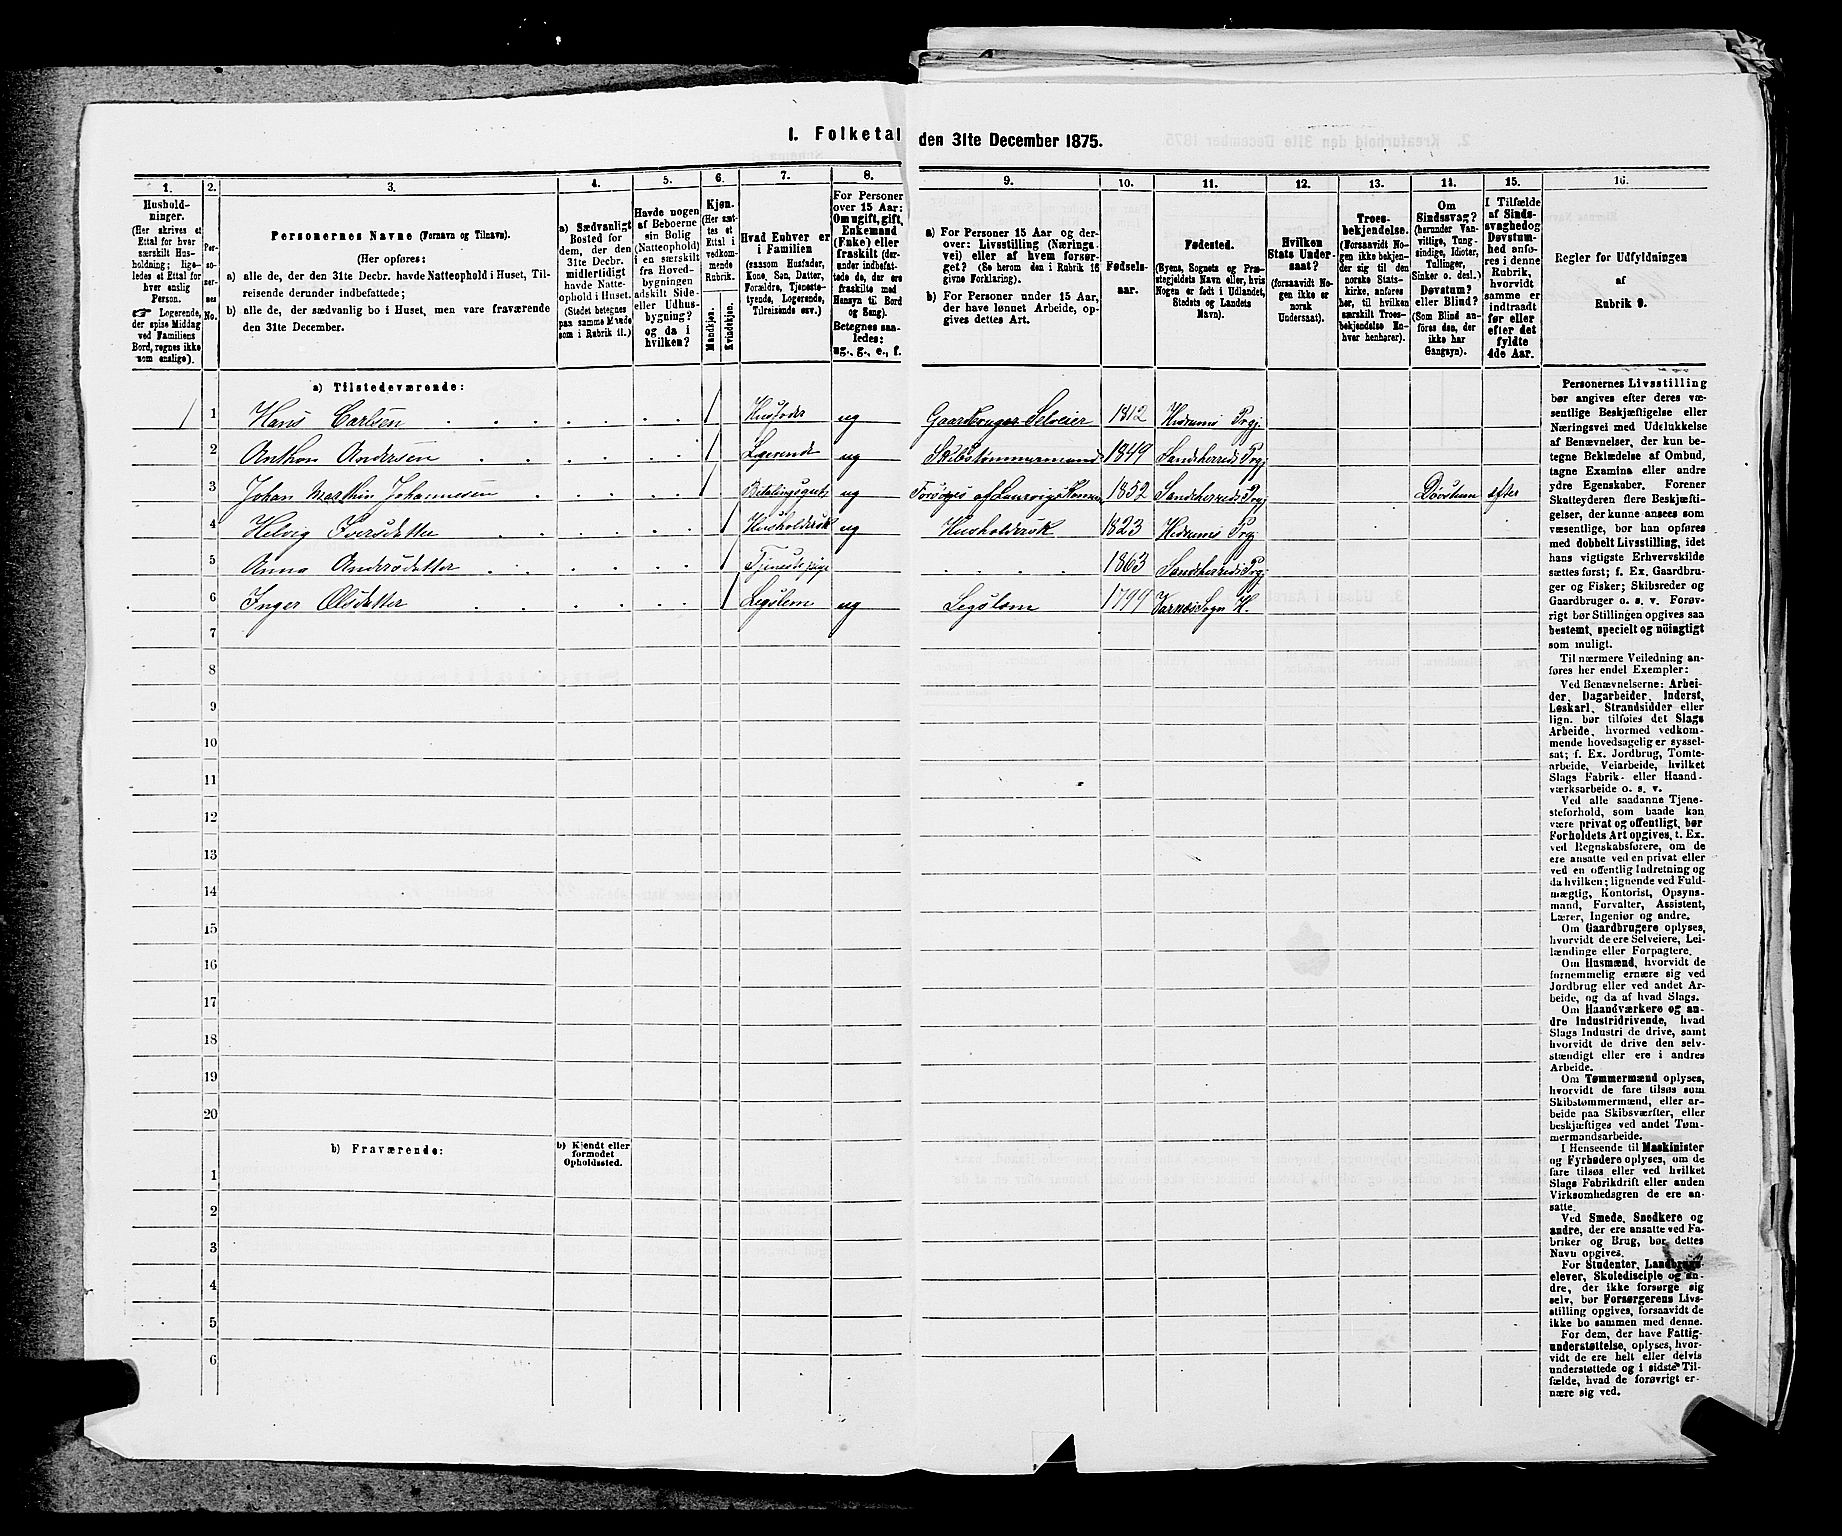 1. Folketal den 31te December 1875.
1. 2. 3. 4. 5. 6. 7. 8. 9. 10. 11. 12. 13. 14. 15. 16.
Hushold-
ninger.
(Her skrives et
Ettal for hver
særskilt Hus-
holdning; lige-
ledes et Ettal for
hver enslig
Person.
☞ Logerende,
der spise Middag
ved Familiens
Bord, regnes ikke
som enslige).
Per-
so-
ner-
nes
No.
Personernes Navne (Fornavn og Tilnavn).
(Her opføres:
a) alle de, der den 31te Decbr. havde Natteophold i Huset, Til-
reisende derunder indbefattede;
b) alle de, der sædvanlig bo i Huset, men vare fraværende
den 31te December.
a) Sædvanligt
Bosted for
dem, der den
31te Decbr.
midlertidigt
havde Natte-
ophold i Huset.
(Stedet betegnes
paa samme Maade
som i Rubrik 11.)
Havde nogen
af Beboerne
sin Bolig
(Natteophold)
i en særskilt
fra Hoved-
bygningen
adskilt Side-
eller Udhus-
bygning?
og da i
hvilken?
Kjøn.
(Her sæt-
tes et
Ettal i
vedkom-
mende
Rubrik.
Mandkjøn.
Kvindekjøn.
Hvad Enhver er
i Familien
(saasom Husfader,
Kone, Søn, Datter,
Forældre, Tjeneste-
tyende, Logerende,
Tilreisende osv.)
For Personer
over 15 Aar:
Om ugift, gift,
Enkemand
(Enke) eller
fraskilt (der-
under indbefat-
tede de, der ere
fraskilte med
Hensyn til Bord
og Seng).
Betegnes saa-
ledes:
ug., g., e., f.
a) For Personer 15 Aar og der-
over: Livsstilling (Nærings-
vei) eller af hvem forsør-
get? (Se herom den i Rubrik 16
givne Forklaring).
b) For Personer under 15 Aar,
der have lønnet Arbeide, op-
gives dettes Art.
Fødsels-
aar.
Fødested.
(Byens, Sognets og Præ-
stegjeldets Navn eller, hvis
Nogen er født i Udlandet,
Stedets og Landets
Navn).
Hvilken
Stats Under-
saat?
(forsaavidt No-
gen ikke er
norsk
Undersaat).
Troes-
bekjendelse.
(Forsaavidt No-
gen ikke bekjen-
der sig til den
norske Stats-
kirke, anføres
her, til hvilken
særskilt Troes-
bekjendelse En-
hver henhører).
Om
Sindssvag?
(herunder Van-
vittige, Tung-
sindige, Idioter,
Tullinger,
Sinker o. desl.)
Døvstum?
eller Blind?
(Som Blind an-
føres den, der
ikke har
Gangsyn).
I Tilfælde
af Sinds-
svaghed og
Døvstum-
hed anfø-
res i denne
Rubrik,
hvorvidt
samme er
indtraadt
før eller
efter det
fyldte
4de Aar.
Regler for Udfyldningen
af
Rubrik 9.
a) Tilstedeværende:
1 1 Hans Carlsen 1 Husfader ug Gaardbruger Selveier 1812 Hedrums Prgj.
2 Anthon Andersen 1 Logerende ug Skibstømmermand 1849 Sandeherreds Prgj
3 Johan Marthin Johannesen 1 ug 1852 Sandeherreds Prgj Døvstum efter
4 Helvig Iversdatter 1 Husholderske ug Husholderske 1823 Hedrums Prgj
5 Anna Andersdatter 1 Tjenestepige 1863 Sandeherreds Prgj
6 Inger Olsdatter 1 Legslem ug Legslem 1799 Sogn H.
7
8
9
10
11
12
13
14
15
16
17
18
19
20
b) Fraværende:
b) Kjendt eller
formodet
Opholdssted.
1
2
3
4
5
6
Personernes Livsstilling
bør angives efter deres væ-
sentlige Beskjæftigelse eller
Næringsvei med Udelukkelse
af Benævnelser, der kun be-
tegne Beklædelse af Ombud,
tagne Examina eller andre
ydre Egenskaber. Forener
Skatteyderen flere Beskjæfti-
gelser, der kunne ansees som
væsentlige, bør han opføres
med dobbelt Livsstilling, idet
hans vigtigste Erhvervskilde
sættes først; f. Ex. Gaardbru-
ger og Fisker; Skibsreder og
Gaardbruger o. s. v. Forøv-
rigt bør Stillingen opgives saa
bestemt, specielt og nöiagtigt
som muligt.
Til nærmere Veiledning an-
føres her endel Exempler:
Ved Benævnelserne: Arbei-
der, Dagarbeider, Inderst,
Løskarl, Strandsidder eller
lign. bør tilføies det Slags
Arbeide, hvormed vedkom-
mende hovedsagelig er syssel-
sat; f. Ex. Jordbrug, Tomte-
arbeide, Veiarbeide, hvilket
Slags Fabrik- eller Haand-
værksarbeide o. s. v.
Ved alle saadanne Tjene-
steforhold, som baade kan
være privat og offentligt, bør
Forholdets Art opgives, t. Ex.
ved Regnskabsførere, om de
ere ansatte ved en privat eller
ved en offentlig Indretning og
da hvilken; lignende ved Fuld-
mægtig, Kontorist, Opsyns-
mand, Forvalter, Assistent,
Lærer, Ingeniør og andre.
Om Gaardbrugere oplyses,
hvorvidt de ere Selveiere, Lei-
lændinge eller Forpagtere.
Om Husmænd, hvorvidt de
fornemmelig ernære sig ved
Jordbrug eller ved andet Ar-
beide, og da af hvad Slags.
Om Haandværkere og an-
dre Industridrivende, hvad
Slags Industri de drive, samt
hvorvidt de drive den selv-
stændigt eller ere i andres
Arbeide.
Om Tømmermænd oplyses,
hvorvidt de fare tilsøs som
Skibstømmermænd, eller ar-
beide paa Skibsværfter, eller
beskjæftiges ved andet Tøm-
mermandsarbeide.
I Henseende til Maskinister
og Fyrbødere oplyses, om de
fare tilsøs eller ved hvilket
Slags Fabrikdrift eller anden
Virksomhedsgren de ere an-
satte.
Ved Smede, Snedkere og
andre, der ere ansatte ved Fa-
briker og Brug, bør dettes
Navn opgives.
For Studenter, Landbrugs-
elever, Skoledisciple og an-
dre, der ikke forsørge sig
selv, bør Forsørgerens Livs-
stilling opgives, forsaavidt de
ikke bo sammen med denne.
For dem, der have Fattig-
understøttelse, oplyses, hvor-
vidt de ere helt eller delvis
understøttede og i sidste Til-
fælde, hvad de forøvrigt er-
nære sig ved.